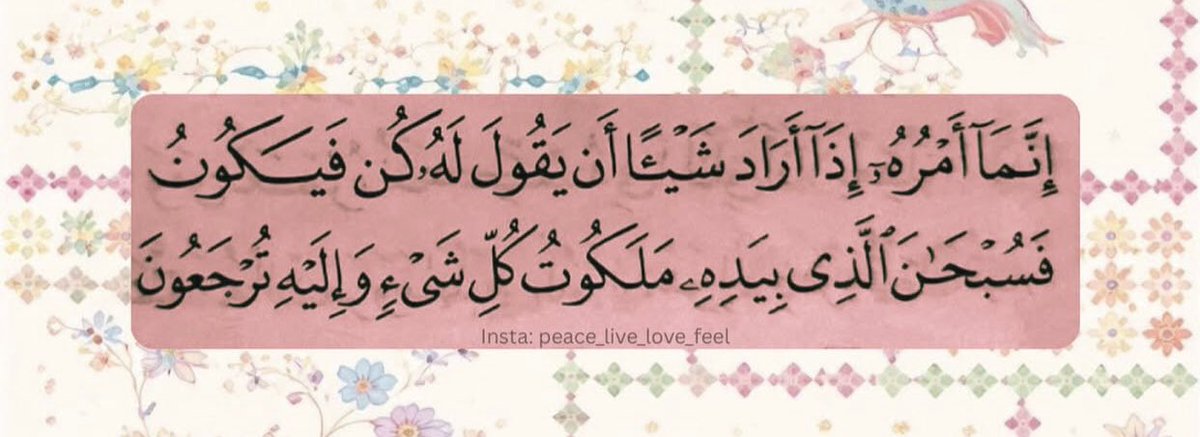 إِنَّمَآ أَمْرُهُۥٓ إِذَآ أَرَادَ شَيْـًٔا أَن يَقُولَ لَهُۥ كُن فَيَكُونُ
فَسُبْحَـٰنَ ٱلَّذِى بِيَدِهِۦ مَلَكُوتُ كُلِّ شَىْءٍ وَإِلَيْهِ تُرْجَعُونَ
Insta: peace_live_love_feel